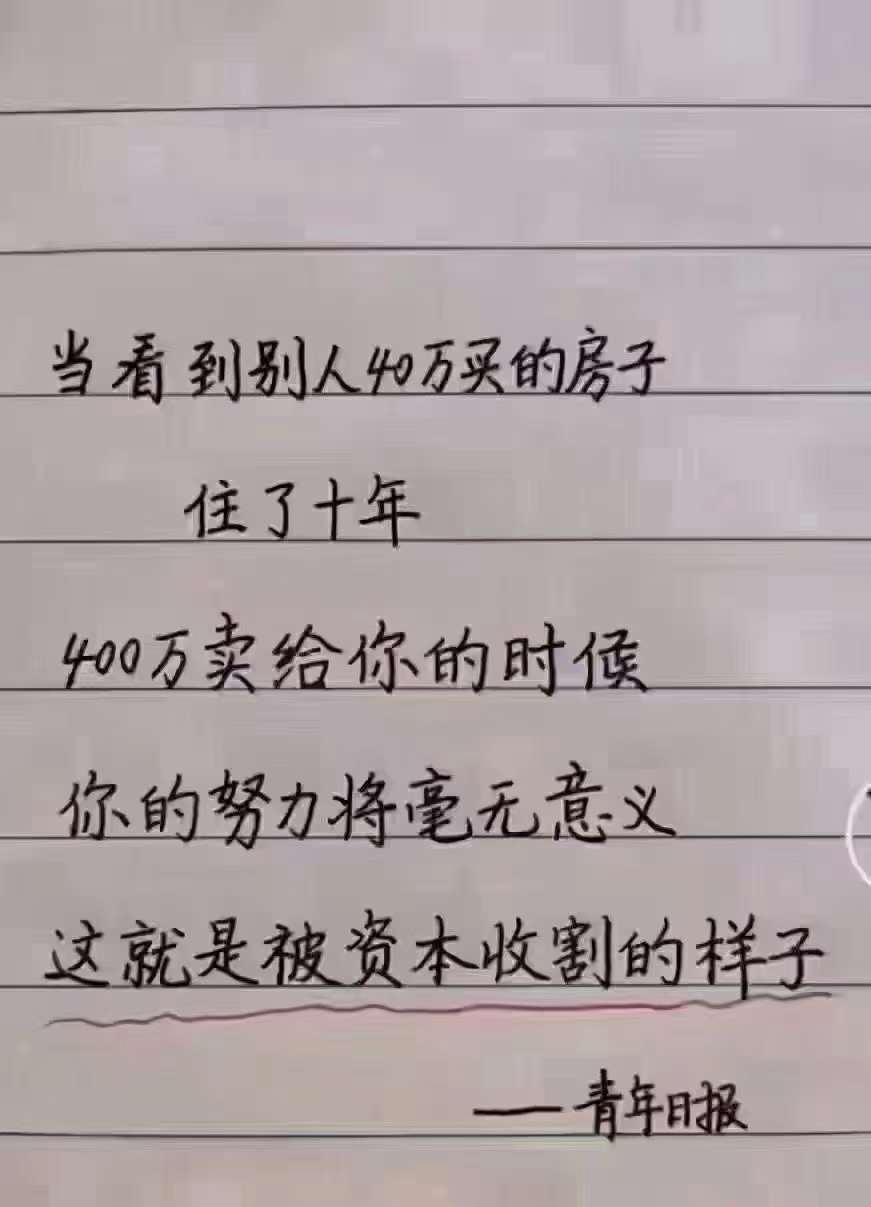 当看到别人40万买的房子
住了十年
400万卖给你的时候
你的努力将毫无意义
这就是被资本收割的样子
——青年日报